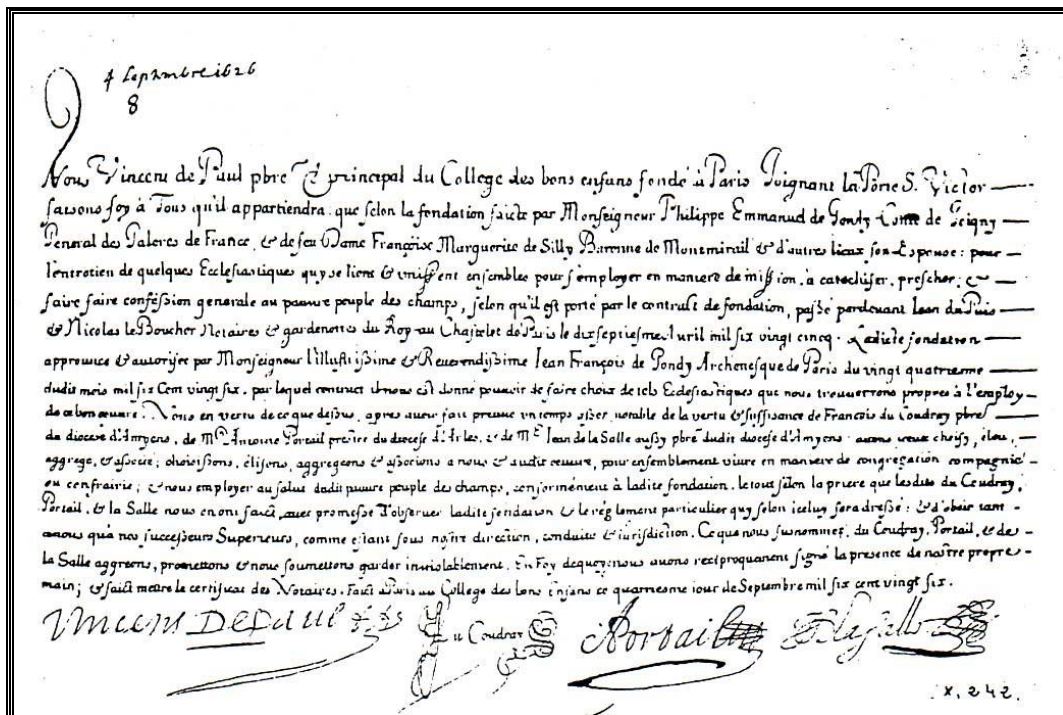 4 Septembre 1626
8
Nous Vincent de Paul pbre & principal du College des bons enfans fondé à Paris Joignant la Porte S. Victor
faisons foy à Tous qu'il appartiendra que selon la fondation faicte par Monseigneur Philippe Emmanuel de Gondy Comte de Joigny
General des Galeres de France, & de feu Dame Françoise Marguerite de Silly Baronne de Montmirail & d'autres lieux son Espouse: pour
l'entretien de quelques Ecclesiastiques qui se lient & unissent ensembles pour s'employer en maniere de mission, à catechiser, prescher; &
faire faire confession generale au pauvre peuple des champs, selon qu'il est porté par le contract de fondation, passé pardevant Jean du Puis
& Nicolas le Boucher Notaires & gardenottes du Roy au Chastelet de Paris le dixseptiesme Avril mil six vingt cinq. Ladicte fondation
approuvée & autorisée par Monseigneur l'Illustrissime & Reverendissime Jean François de Gondy Archevesque de Paris du vingt quatriesme
dudit mois mil six Cent vingt six. par lequel contract il nous est donné pouvoir de faire choix de tels Ecclesiastiques que nous trouverrons propres à l'employ
de ce bon œuvre: Nous en vertu de ce que dessus, apres avoir fait preuve un temps assez notable de la vertu & suffisance de François du Coudray pbre
du diocese d'Amyens, de Mre Antoine Portail prestre du diocese d'Arles, & de Mre Jean de la Salle aussy pbre dudit diocese d'Amyens avons iceux choisy, eleu,
aggregé, & associé; choisissons, élisons, aggregeons & associons a nous & audit œuvre, pour ensemblement vivre en maniere de congregation compagnie
ou confrairie; & nous employer au salut dudit pauvre peuple des champs, conformément à ladite fondation. le tout selon la priere que lesdits du Coudray,
Portail, & la Salle nous en ont faict, avec promesse d'observer ladite fondation & le réglement particulier quy selon iceluy sera dressé: & d'obeir tant
a nous qu'à nos successeurs Superieurs, comme estant sous nostre direction, conduite & jurisdiction. Ce que nous susnommez, du Coudray, Portail, & de
la Salle aggreons, promettons & nous soumettons garder inviolablement. En Foy dequoy nous avons reciproquement signé la presente de nostre propre
main; & faict mettre le certificat des Notaires. Faict Paris au College des bons Enfans ce quatriesme jour de Septembre mil six cent vingt six.
Vincent Depaul du Coudray APortail de la Salle
X. 242.